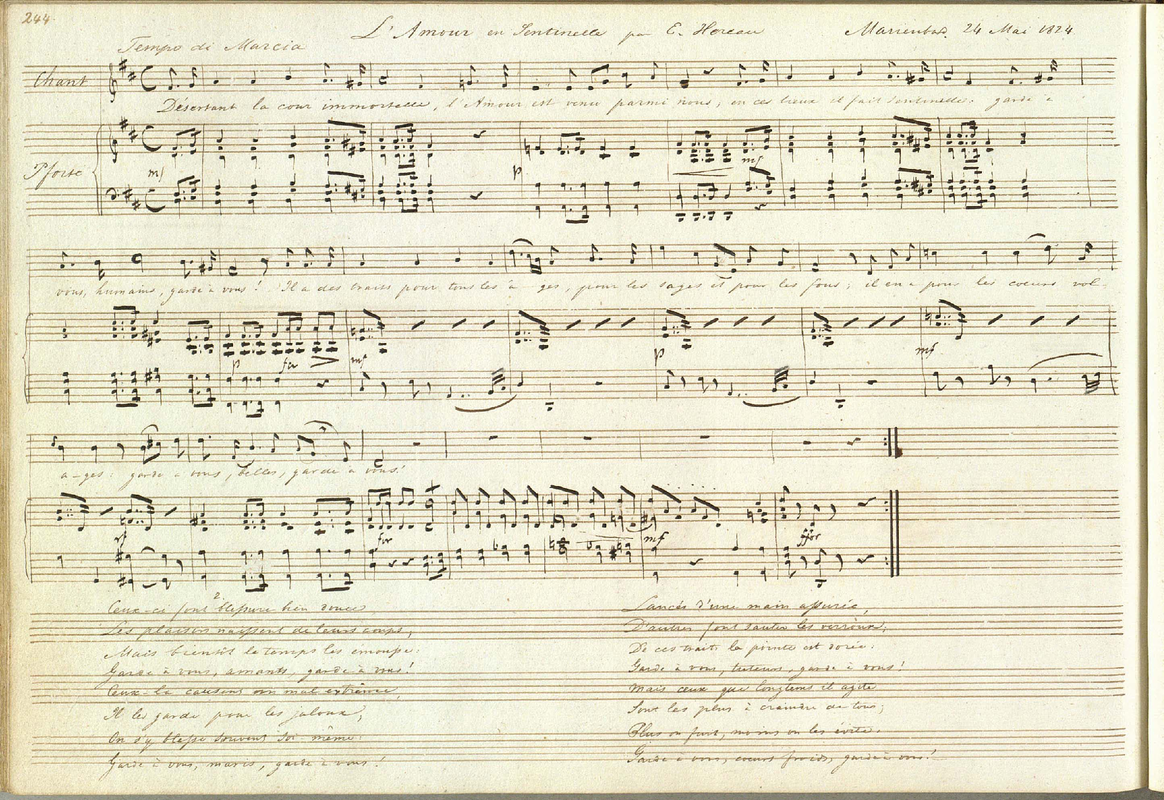 244
L'Amour en Sentinelle par E. Horeau 24 Mai 1824
Tempo di Marcia
Chant
Désertant la cour immortelle, l'Amour est venu parmi nous, en ces lieux il fait sentinelle: garde à
Pforte
mf p mf
vous, humains, garde à vous! Il a des traits pour tous les â-ges, pour les sages et pour les fous; il en a pour les coeurs vol-
p for mf p mf
a-ges: garde à vous, belles, garde à vous!
for mf ffor
2
Ceux-ci font blessure bien douce
Les plaisirs naissent de leurs coups,
Mais bientôt le temps les émousse:
Garde à vous, amants, garde à vous!
Ceux-là causent un mal extrème,
Il les garde pour les jaloux,
On s'y blesse souvent soi-même:
Garde à vous, maris, garde à vous!
Lancés d'une main assurée,
D'autres font sauter les verroux,
De ces traits la pointe est dorée:
Garde à vous, tuteurs, garde à vous!
Mais ceux que longtems il agite
Sont les plus à craindre de tous;
Plus on fuit, moins on les évite:
Garde à vous, coeurs froids, garde à vous!